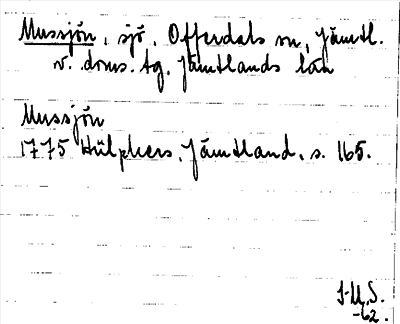 Mussjön, sjö, Offerdals sn, Jämtl.
v. doms. tg, Jämtlands län
Mussjön
1775 Hülphers, Jämtland, s. 165.
J-M,S.
-62.